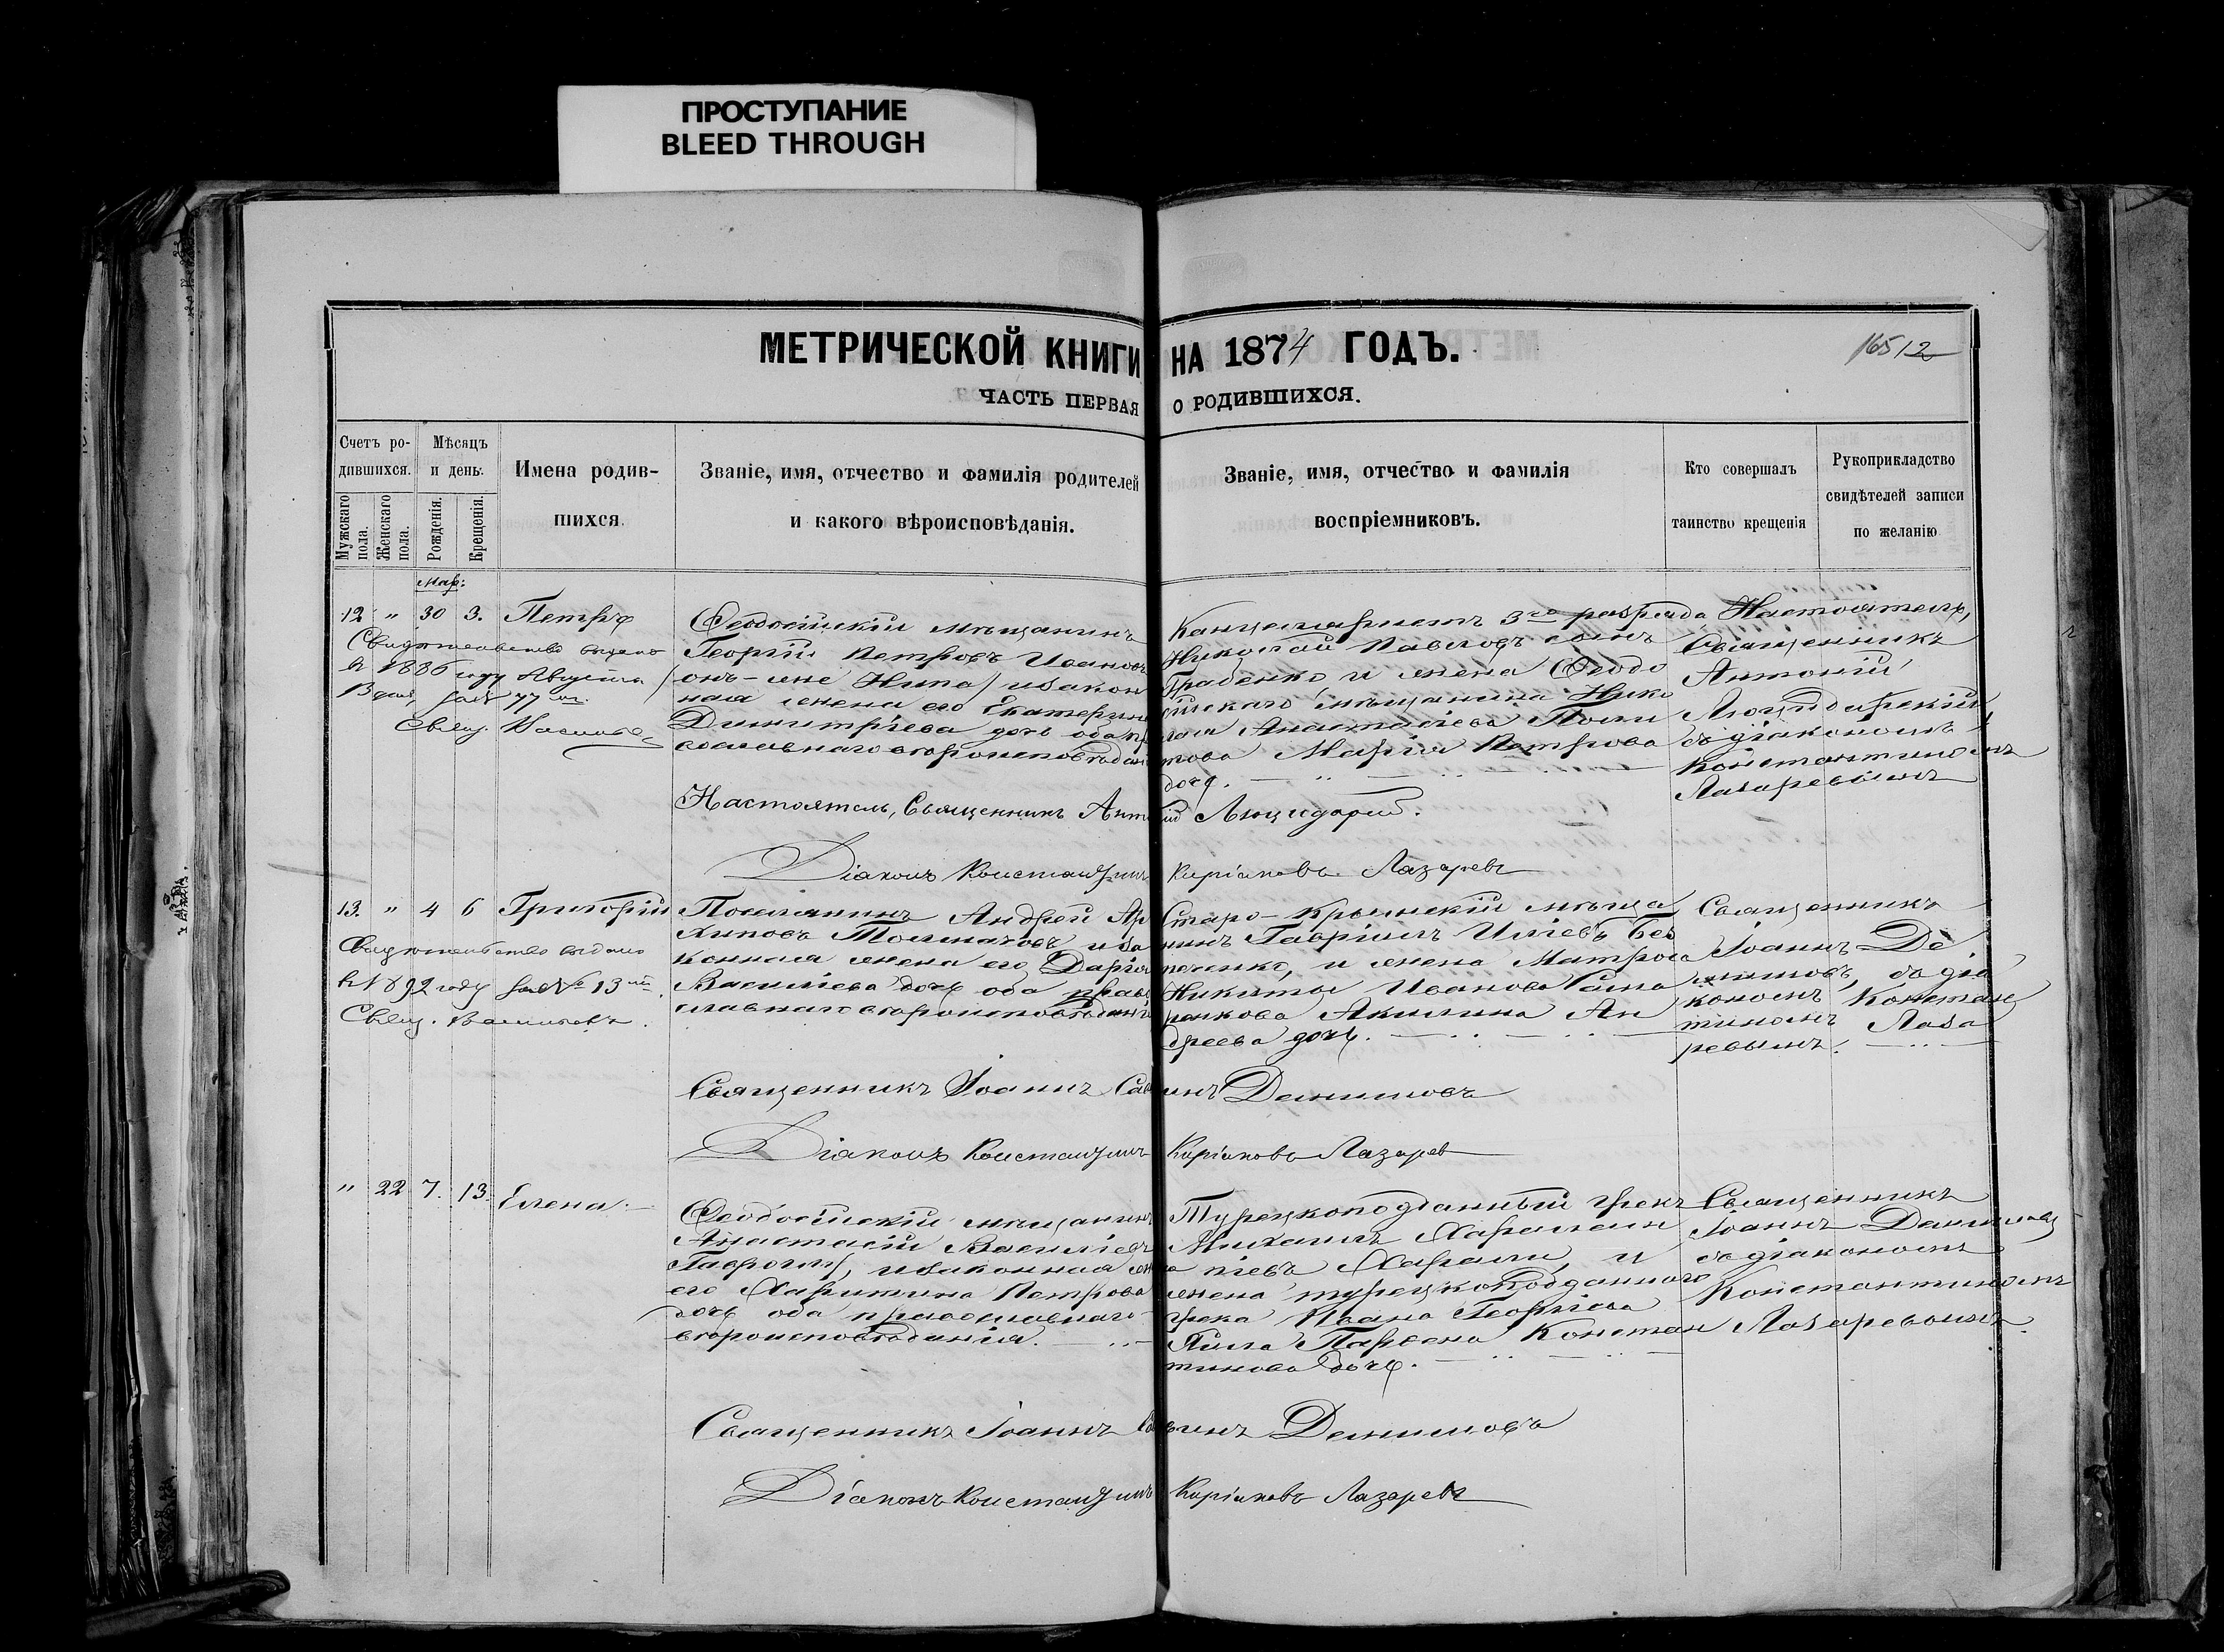 ПРОСТУПАНИЕ
BLEED THROUGH
МЕТРИЧЕСКОЙ КНИГИ НА 1874 ГОДЪ.
ЧАСТЬ ПЕРВАЯ О РОДИВШИХСЯ.
Счетъ ро-
дившихся.
Мужскаго пола.
Женскаго пола.
Мѣсяцъ
и день.
Рожденія.
Крещенія.
Имена родив-
шихся
Званіе, имя, отчество и фамилія родителей
и какого вѣроисповѣданія.
Званіе, имя, отчество и фамилія
воспріемниковъ.
Кто совершалъ
таинство крещенія
Рукоприкладство
свидѣтелей записи
по желанію
Мар:
12 " 30 3. Петръ
Свидѣтельство выдано
въ 1886 году Августа
13 дня, за № 77
Свящ.
Ѳеодосійскій мѣщанинъ
Георгій Петровъ Ивановъ
/онъ-же Нипа/ и закон
ная жена его Екатерина
Димитріева дочь оба пра
вославнаго вѣроисповѣдан
Канцеляристъ 3го разряда
Николай Павловъ сынъ
Граденко, и жена Ѳеодо
сійскаго мѣщанина Нико
лая Анастасіева
Марія Петрова
дочь.
Настоятель,
Священникъ
Антоній
съ діакономъ
Константиномъ
Лазаревымъ
Настоятель, Священникъ Антоній Люцидарій.
Діаконъ Константинъ Киріаковъ Лазаревъ
13. " 4 6 Григорій
Свидѣтельство выдано
въ 1892 году за № 13
Свящ.
Поселянинъ Андрей Ар
хиповъ Толмачовъ и за
конная жена его Дарія
Василіева дочь оба прав
славнаго вѣроисповѣдан
Старо-Крымскій мѣща
нинъ Гавріилъ Иліевъ
и жена Матроса
Никиты Иванова
Акилина Ан
дреева дочь.
Священникъ
Іоаннъ Де
нимовъ, съ діа
кономъ Констан
тиномъ Лаза
ревымъ.
Священникъ Іоаннъ Саввинъ
Діаконъ Константинъ Киріаковъ Лазаревъ
" 22 7. 13. Елена.
Ѳеодосійскій мѣщанинъ
Анастасій Василіевъ
и законная жена
его Харитина Петрова
дочь оба православнаго
вѣроисповѣданія.
Турецкоподданный грекъ
Михаилъ Харалам
піевъ и
жена турецкоподданнаго
грека Ивана Георгіева
Констан
тинова дочь.
Священникъ
Іоаннъ
съ діакономъ
Константиномъ
Лазаревымъ.
Священникъ Іоаннъ Саввинъ
Діаконъ Константинъ Киріаковъ Лазаревъ